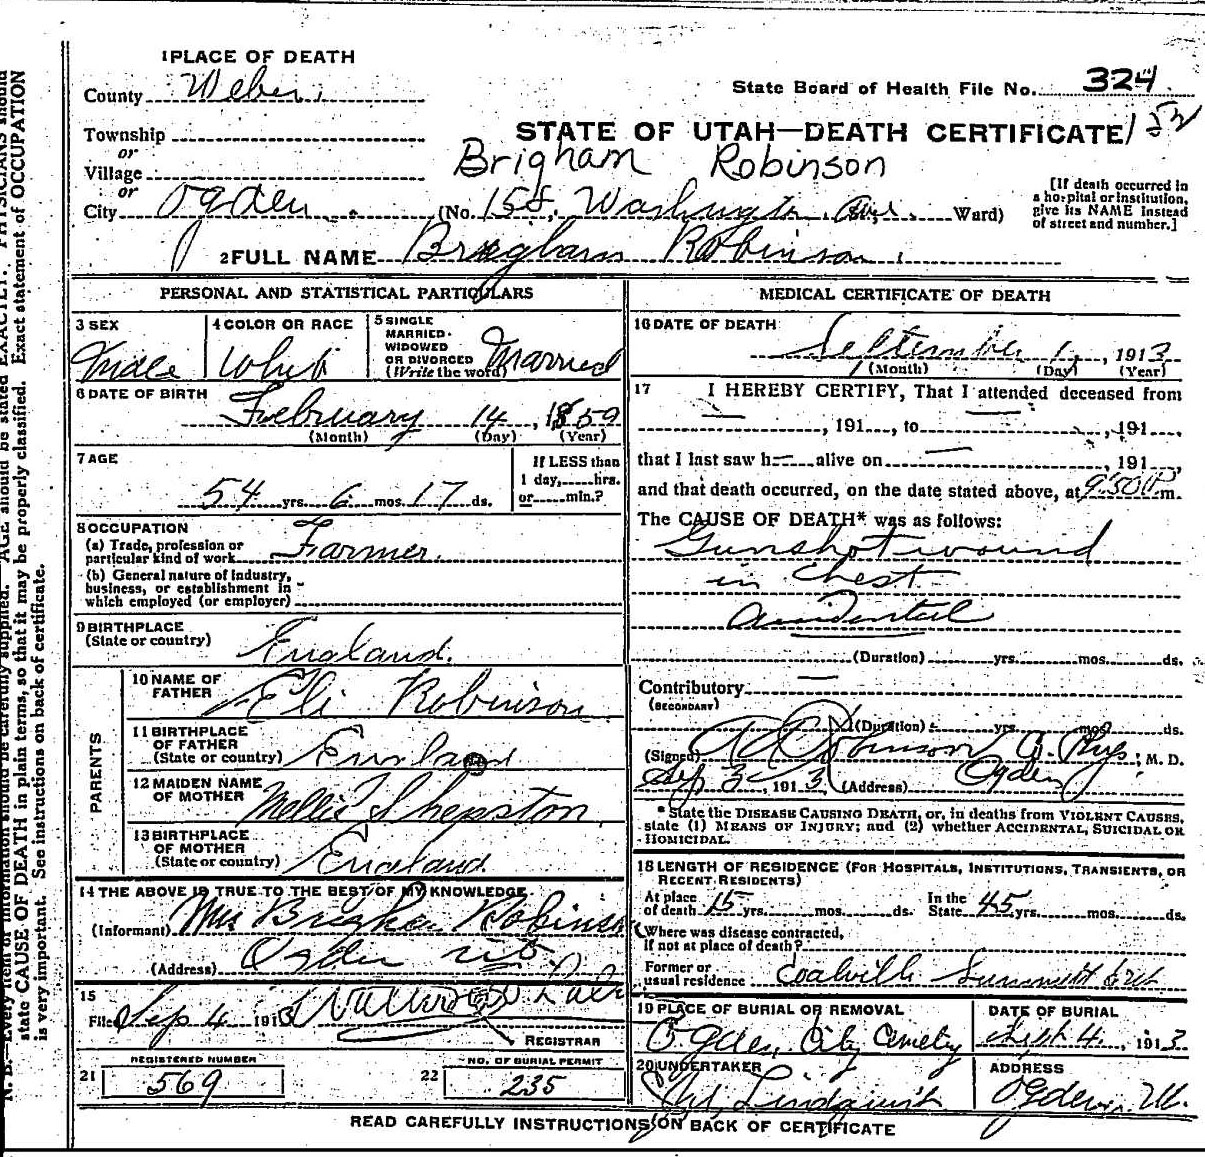 1 PLACE OF DEATH
County Weber.
State Board of Health File No. 324
Township
or
Village
or
City Ogden
STATE OF UTAH—DEATH CERTIFICATE
152
Brigham Robinson
(No. 158, Washington Ave. Ward)
[If death occurred in
a hospital or institution,
give its NAME instead
of street and number.]
2 FULL NAME Brigham Robinson.
PERSONAL AND STATISTICAL PARTICULARS
3 SEX
Male
4 COLOR OR RACE
White
5 SINGLE
MARRIED
WIDOWED
OR DIVORCED
(Write the word)
Married
6 DATE OF BIRTH
February 14, 1859
(Month) (Day) (Year)
7 AGE
54 yrs. 6 mos. 17 ds.
If LESS than
1 day, hrs.
or min.?
8 OCCUPATION
(a) Trade, profession or
particular kind of work Farmer.
(b) General nature of industry,
business, or establishment in
which employed (or employer)
9 BIRTHPLACE
(State or country) England.
PARENTS
10 NAME OF
FATHER Eli Robinson
11 BIRTHPLACE
OF FATHER
(State or country) England
12 MAIDEN NAME
OF MOTHER Shepston
13 BIRTHPLACE
OF MOTHER
(State or country) England.
14 THE ABOVE IS TRUE TO THE BEST OF MY KNOWLEDGE
(Informant) Mrs Brigham Robinson
(Address) Ogden
15
Filed Sep 4 1913
REGISTRAR
REGISTERED NUMBER
21 569
NO. OF BURIAL PERMIT
22 235
MEDICAL CERTIFICATE OF DEATH
16 DATE OF DEATH
September 1, 1913
(Month) (Day) (Year)
17 I HEREBY CERTIFY, That I attended deceased from
, 191 , to , 191 ,
that I last saw h alive on , 191 ,
and that death occurred, on the date stated above, at 9:50 P.m.
The CAUSE OF DEATH* was as follows:
Gunshot wound
in chest
accidental
(Duration) yrs. mos. ds.
Contributory
(SECONDARY)
(Duration) yrs. mos. ds.
(Signed) Robinson , M. D.
Sep 3 , 1913 (Address) Ogden
* State the DISEASE CAUSING DEATH, or, in deaths from VIOLENT CAUSES,
state (1) MEANS OF INJURY; and (2) whether ACCIDENTAL, SUICIDAL OR
HOMICIDAL.
18 LENGTH OF RESIDENCE (FOR HOSPITALS, INSTITUTIONS, TRANSIENTS, OR
RECENT RESIDENTS)
At place
of death 15 yrs. mos. ds.
In the
State 45 yrs. mos. ds.
Where was disease contracted,
if not at place of death?
Former or
usual residence Coalville Summit
19 PLACE OF BURIAL OR REMOVAL
Ogden City Cemetery
DATE OF BURIAL
Sept 4, 1913
20 UNDERTAKER
Lindquist
ADDRESS
Ogden, Ut.
READ CAREFULLY INSTRUCTIONS ON BACK OF CERTIFICATE
N. B.—Every item of information should be carefully supplied. AGE should be stated EXACTLY. PHYSICIANS should
state CAUSE OF DEATH in plain terms, so that it may be properly classified. Exact statement of OCCUPATION
is very important. See instructions on back of certificate.